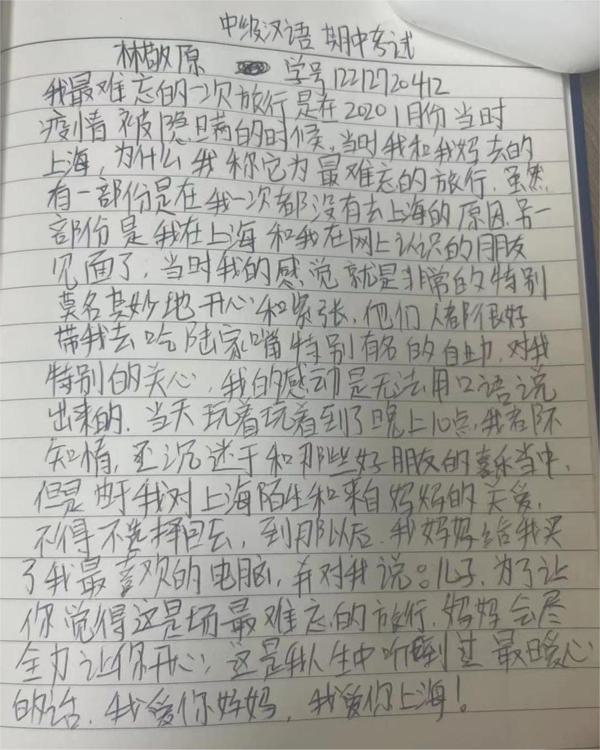 中级汉语 期中考试
林敬原 学号12212720412
我最难忘的一次旅行是在2020 1月份当时
疫情被隐瞒的时候,当时我和我妈去的
上海,为什么我称它为最难忘的旅行.虽然
有一部份是在我一次都没有去上海的原因.另一
部份是我在上海和我在网上认识的朋友
见面了,当时我的感觉就是非常的特别
莫名其妙地开心和紧张,他们人都很好
带我去吃陆家嘴特别有名的自助,对我
特别的关心,我的感动是无法用口语说
出来的.当天玩着玩着到了晚上10点,我都不
知情,还沉迷于和那些好朋友的喜乐当中,
但是由于我对上海陌生和来自妈妈的关爱,
不得不选择回去,到那以后.我妈妈给我买
了我最喜欢的电脑,并对我说:儿子,为了让
你觉得这是场最难忘的旅行,妈妈会尽
全力让你开心;这是我人生中听到过最暖心
的话.我爱你妈妈,我爱你上海!